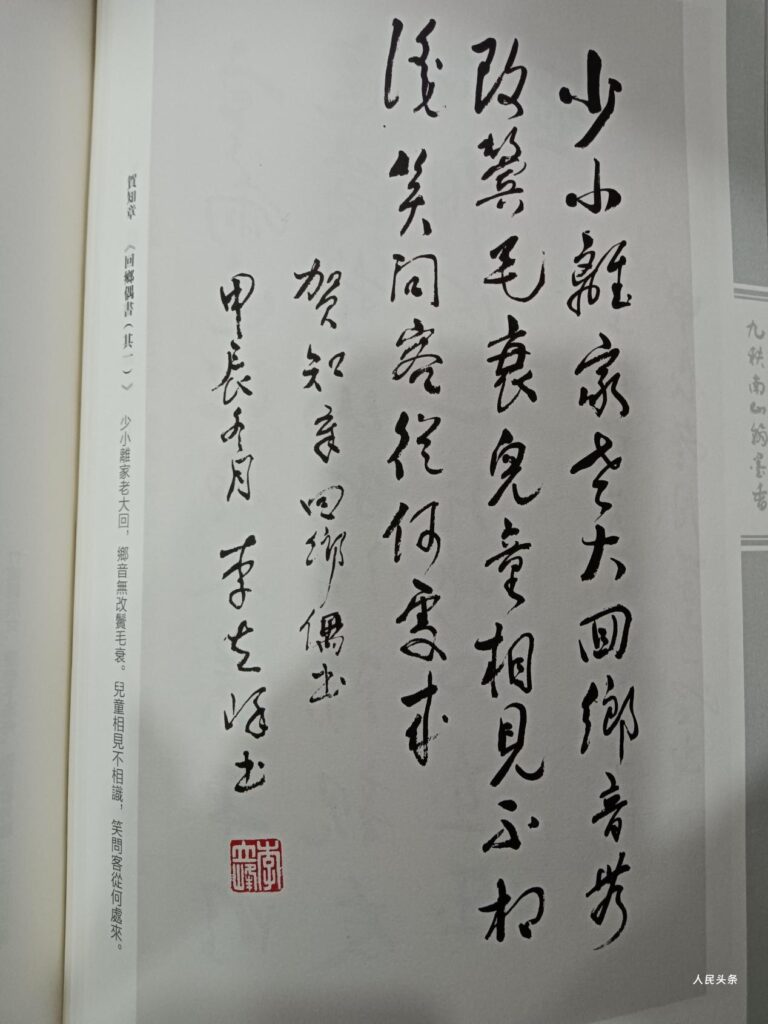 九秩南山翁墨香
少小離家老大回鄉音無
改鬢毛衰兒童相見不相
識笑問客從何處來
賀知章回鄉偶书
甲辰冬月 李书
賀知章 《回鄉偶書(其一)》 少小離家老大回,鄉音無改鬢毛衰。兒童相見不相識,笑問客從何處來。
人民头条